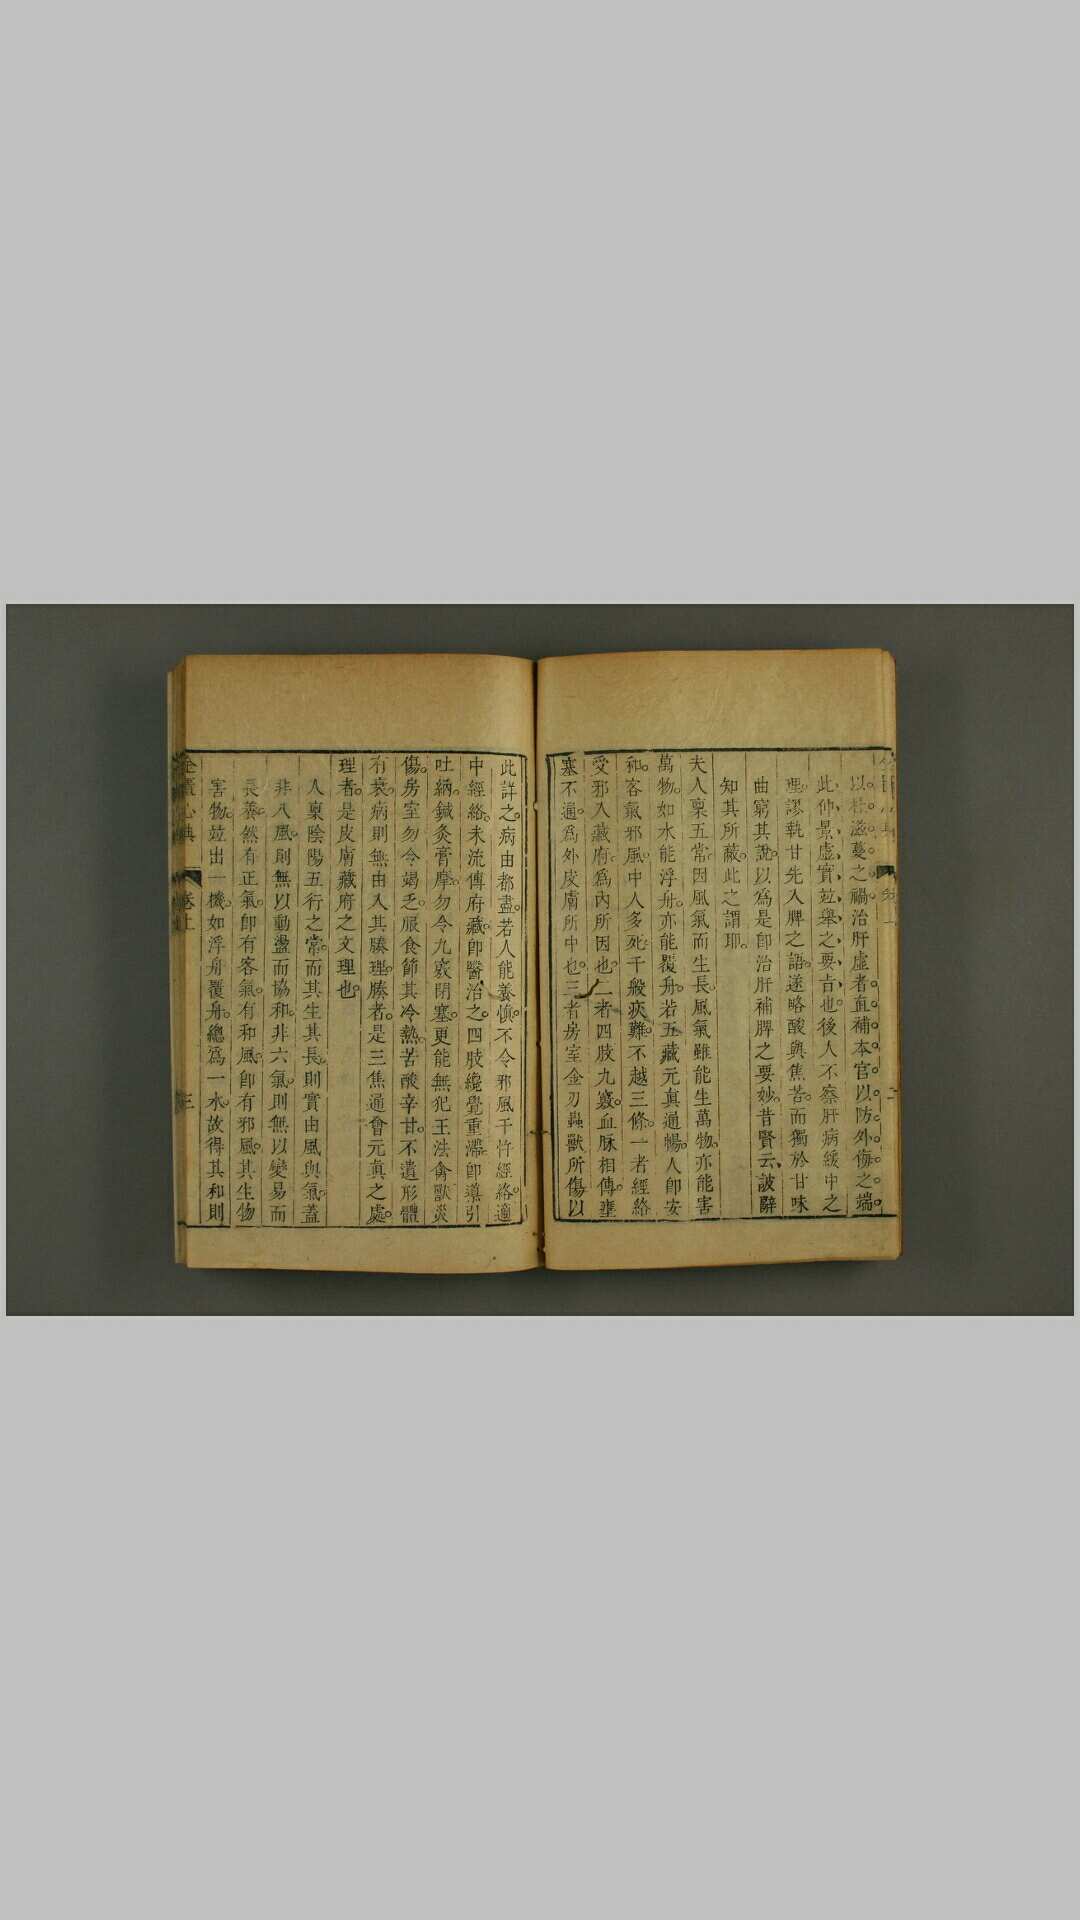 以杜滋蔓之禍治肝虛者直補本官以防外侮之端
此仲景虛實竝舉之要旨也後人不察肝病緩中之
理謬執甘先入脾之語遂略酸與焦苦而獨於甘味
曲窮其說以為是卽治肝補脾之要妙昔賢云詖辭
知其所蔽此之謂耶
夫人稟五常因風氣而生長風氣雖能生萬物亦能害
萬物如水能浮舟亦能覆舟若五藏元眞通暢人卽安
和客氣邪風中人多死千般疢難不越三條一者經絡
受邪入藏府為內所因也二者四肢九竅血脉相傳壅
塞不通為外皮膚所中也三者房室金刃蟲獸所傷以
此詳之病由都盡若人能養慎不令邪風干忤經絡適
中經絡未流傳府藏卽醫治之四肢纔覺重滯卽導引
吐納鍼灸膏摩勿令九竅閉塞更能無犯王法禽獸災
傷房室勿令竭乏服食節其冷熱苦酸辛甘不遺形體
有衰病則無由入其腠理腠者是三焦通會元眞之處
理者是皮膚藏府之文理也
人稟陰陽五行之常而其生其長則實由風與氣蓋
非八風則無以動盪而協和非六氣則無以變易而
長養然有正氣卽有客氣有和風卽有邪風其生物
害物竝出一機如浮舟覆舟總為一水故得其和則
金匱心典
卷上
三